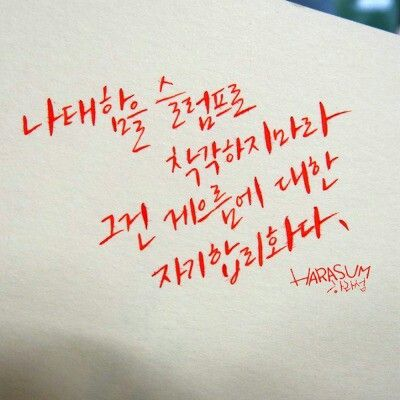 나태함을 슬럼프로
착각하지마라
그건 게으름에 대한
자기합리화다、
HARASUM